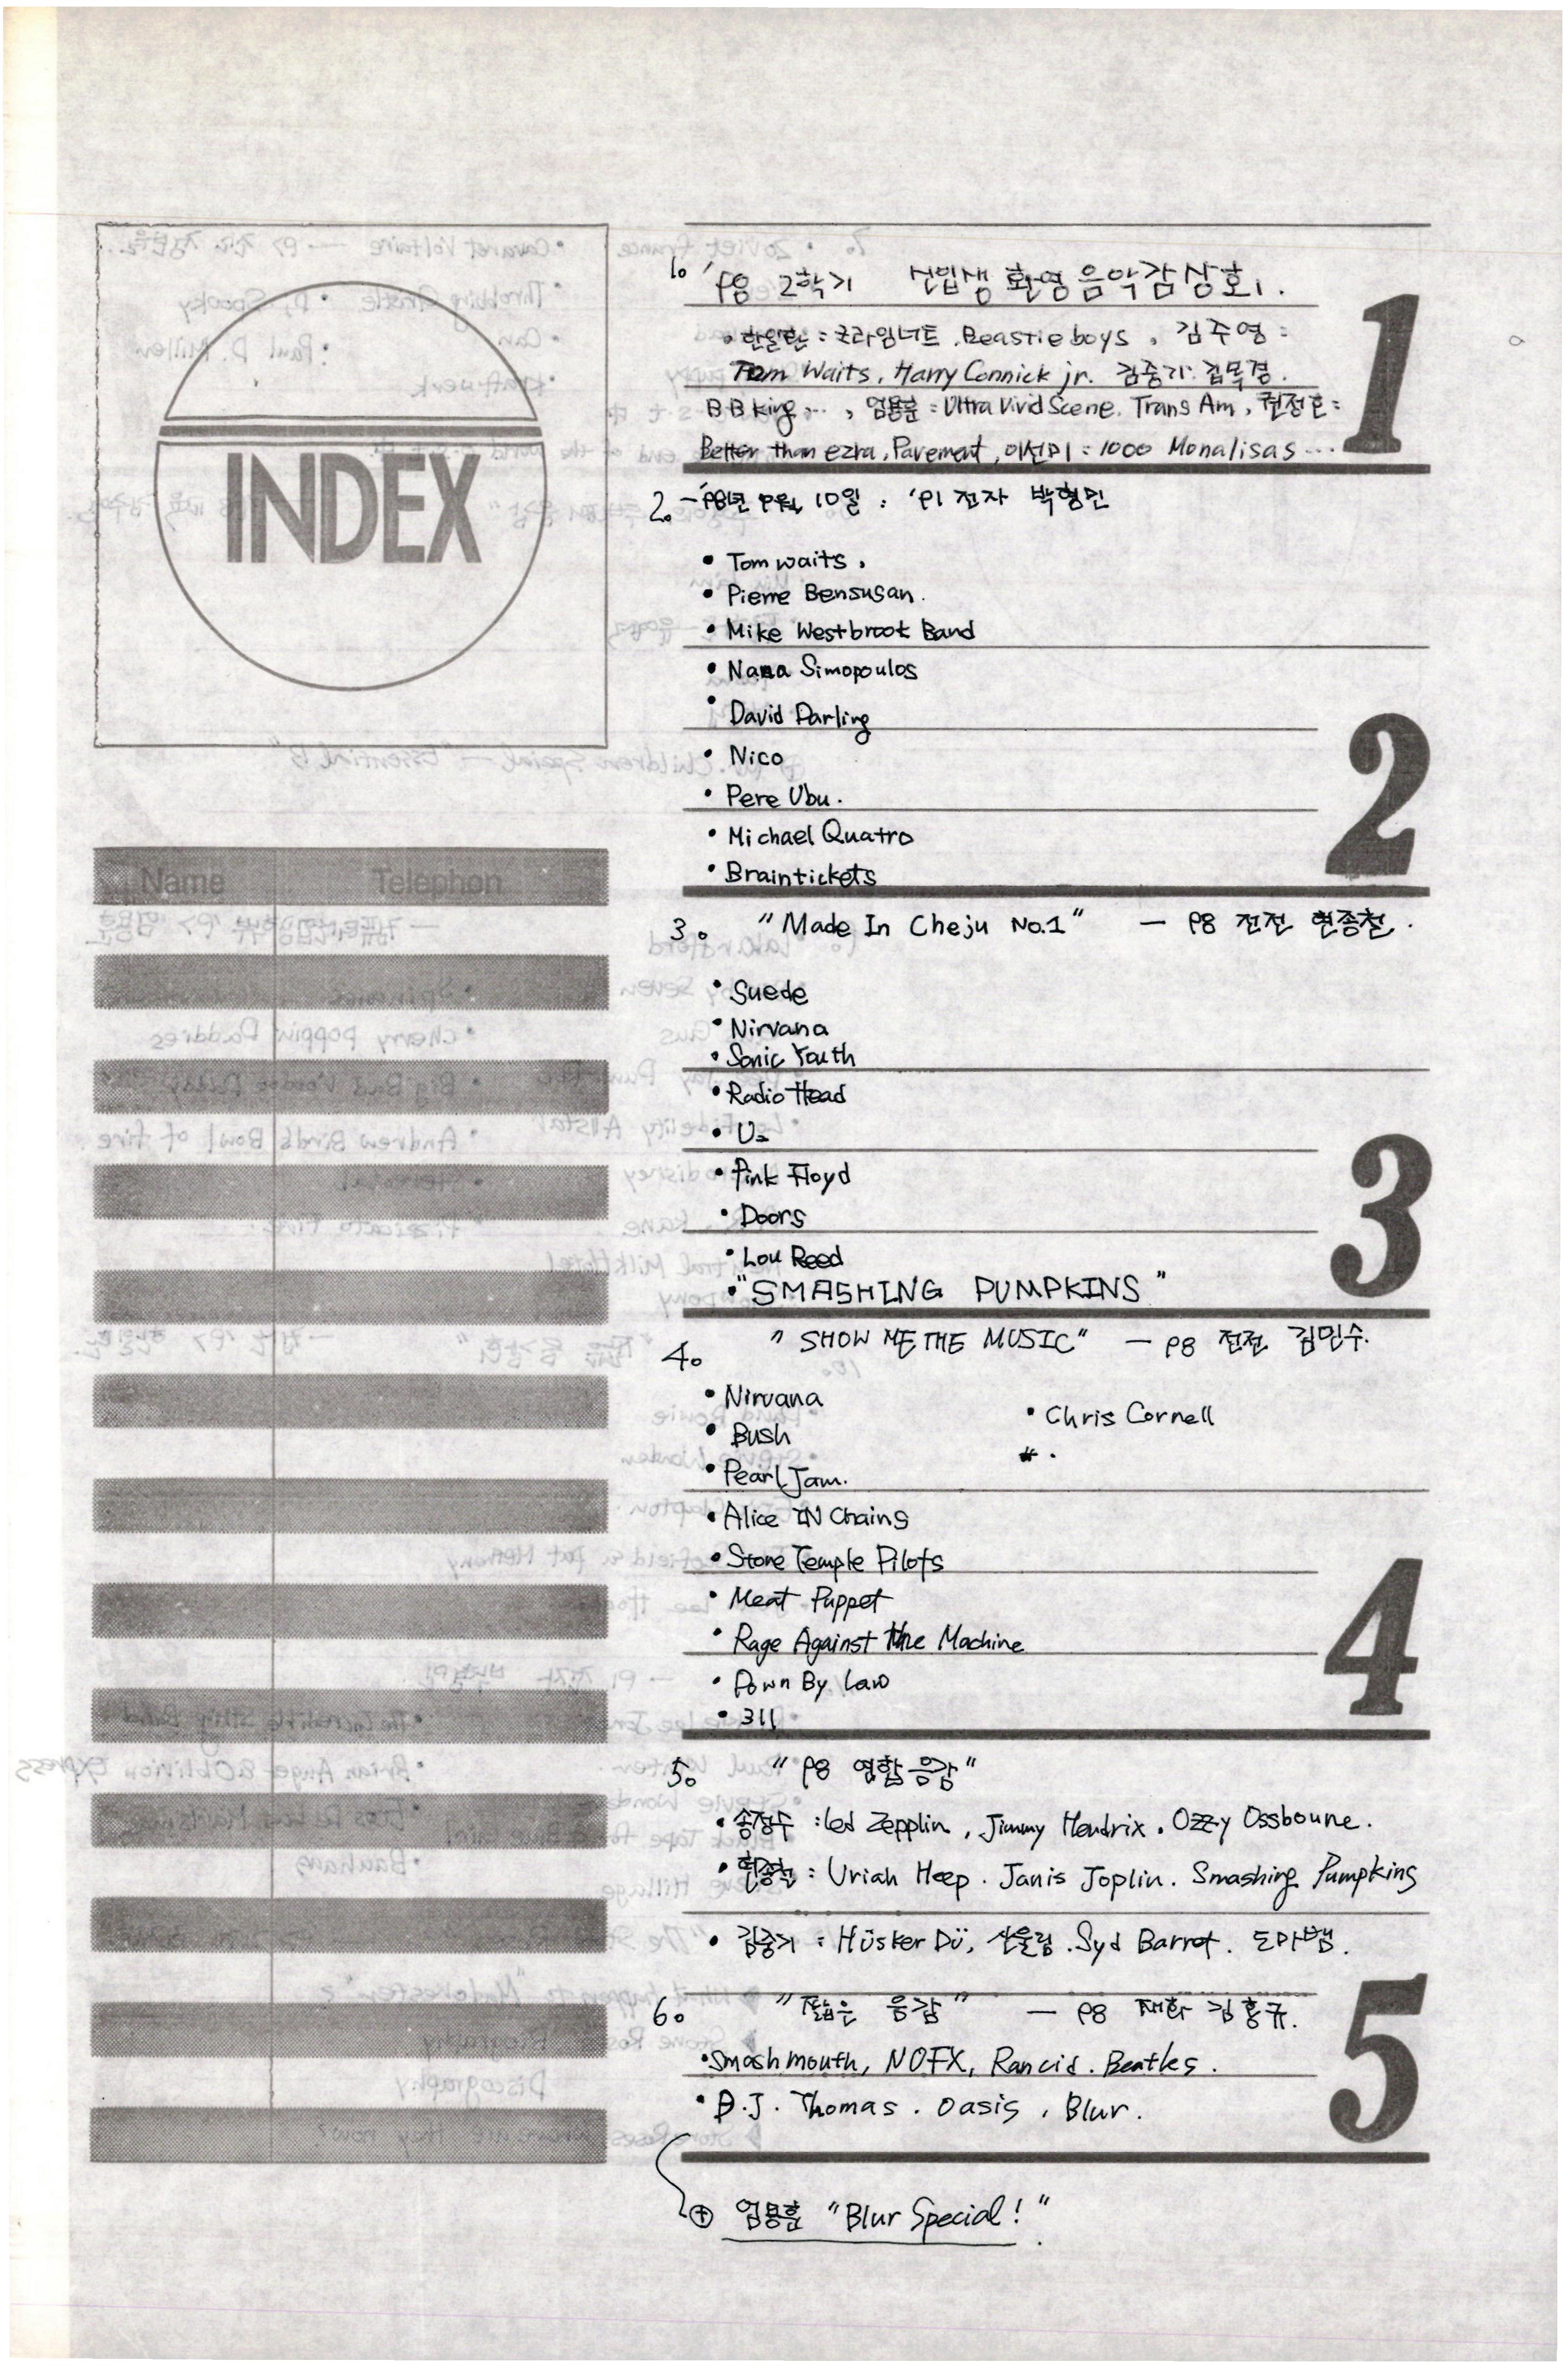 INDEX
Name Telephon
1. '98 2학기 신입생 환영음악감상회.
• 한일란 : 크라잉너트. Beastie boys, 김주영 :
Tom Waits, Harry Connick jr. 김중기: 김목경.
BB king..., 엄용훈 : Ultra Vivid Scene. Trans Am, 권정호 :
Better than ezra, Pavement, 이선미 : 1000 Monalisas ...
1
2. - '98년 9월 10일 : '91 전자 박형민
• Tom waits,
• Pierre Bensusan.
• Mike Westbrook Band
• Nana Simopoulos
• David Darling
• Nico
• Pere Ubu.
• Michael Quatro
• Braintickets
2
3. "Made In Cheju No.1" - 98 전전 현종철.
• Suede
• Nirvana
• Sonic Youth
• Radio Head
• U2
• Pink Floyd
• Doors
• Lou Reed
• "SMASHING PUMPKINS"
3
4. "SHOW ME THE MUSIC" - 98 전전 김민수.
• Nirvana
• Chris Cornell
• Bush
• Pearl Jam.
• Alice IN Chains
• Stone Temple Pilots
• Meat Puppet
• Rage Against the Machine
• Down By Law
• 311
4
5. "98 연합음감"
• 송정수 : Led Zepplin, Jimmy Hendrix. Ozzy Ossboune.
• 현종철 : Uriah Heep. Janis Joplin. Smashing Pumpking
• 김중기 : Hüsker Dü, 산울림. Syd Barrot. 도마뱀.
6. "짧은 음감" - 98 재화 김홍규.
• Smash mouth, NOFX, Rancid. Beatles.
• B.J. Thomas. Oasis, Blur.
5
⊕ 엄용훈 "Blur Special!"